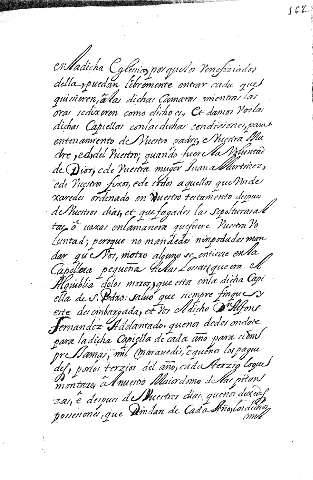 162
en la dicha Eglesia, porque los Venefiziados
della, puedan libremente entrar cada que
quisieren, a las dichas Camaras mientras las
oras se dixeren como dicho es, et damos Vos la
dicha Capiella con las dichas condiciones, para
enterramiento de Nuestro padre, e Nuestra Ma
dre, e de el Vuestro, quando fuere la Voluntad
de Dios, e de Vuestra muger Juana Martinez,
e de Vuestros fixos, e de todos aquellos que Vos de
xaredes ordenado en Vuestro testamento despues
de Vuestros dias, et que fagades las Sepolturas al
tas, o vaxas en la manera que fuere Vuestra Vo
luntad; pero que no mandedes nin podades man
dar que Vos, ni otro alguno se entierre en la
Capilleta pequeña
que esta en la dicha Capi
ella de S. Pedro: salvo que siempre finque
este desembargada, et Vos el dicho Dn. Alfons
Fernandez Adelantado, que nos dedes en dote
para la dicha Capiella de cada año para siem
pre Xamas, mil maravedis, e que nos los pague
des, por los terzios del año, cada terzio lo que
montare, a Nuestro Maiordomo de
e despues de Vuestros dias, que nos dexedes
possesiones, que Rindan de Cada Año, los dichos
mil